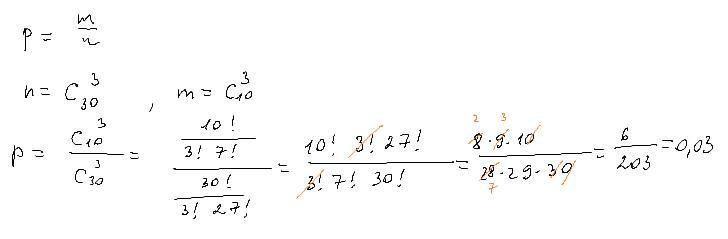 p = m/n
n = C_{30}^{3} , m = C_{10}^{3}
p = C_{10}^{3}/C_{30}^{3} = (10!/(3! 7!))/(30!/(3! 27!)) = (10! 3! 27!)/(3! 7! 30!) = (8·9·10)/(28·29·30) = 6/203 = 0,03
2 3
7